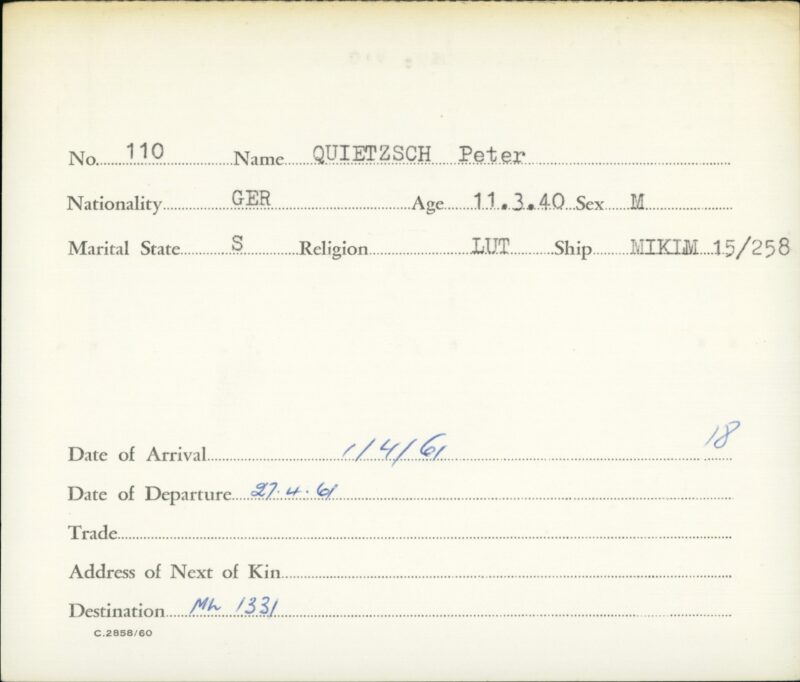 No. 110 Name QUIETZSCH Peter
Nationality GER Age 11.3.40 Sex M
Marital State S Religion LUT Ship MIKIM 15/258
18
Date of Arrival 1/4/61
Date of Departure 27.4.61
Trade
Address of Next of Kin
Destination 1331
C.2858/60